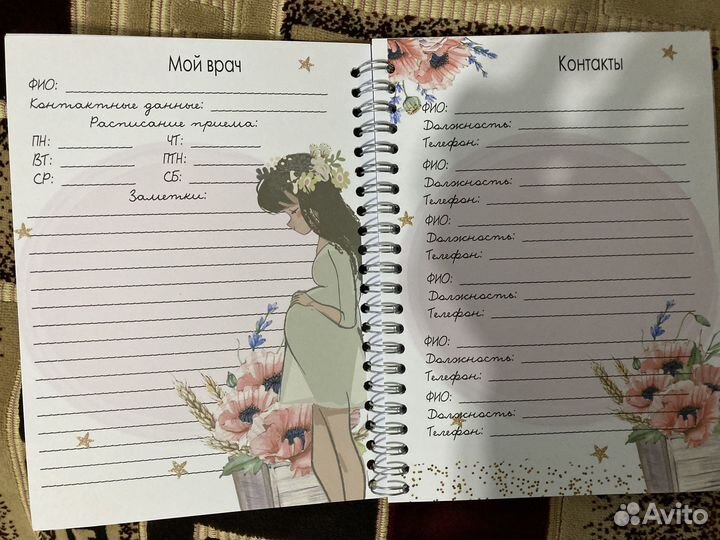 Мой врач
ФИО:
Контактные данные:
Расписание приема:
ПН: ЧТ:
ВТ: ПТН:
СР: СБ:
Заметки:
Контакты
ФИО:
Должность:
Телефон:
ФИО:
Должность:
Телефон:
ФИО:
Должность:
Телефон:
ФИО:
Должность:
Телефон:
ФИО:
Должность:
Телефон:
ФИО:
Должность:
Телефон:
Avito